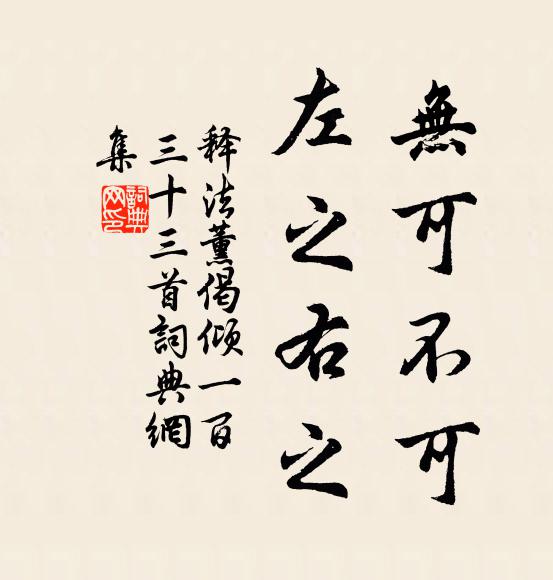 無可不可
左之右之
释法薰偈倾一百
三十三首詞典網
集
詞典
网印